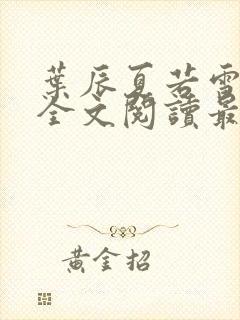 葉辰夏若雪
全文閱讀最
黃金招